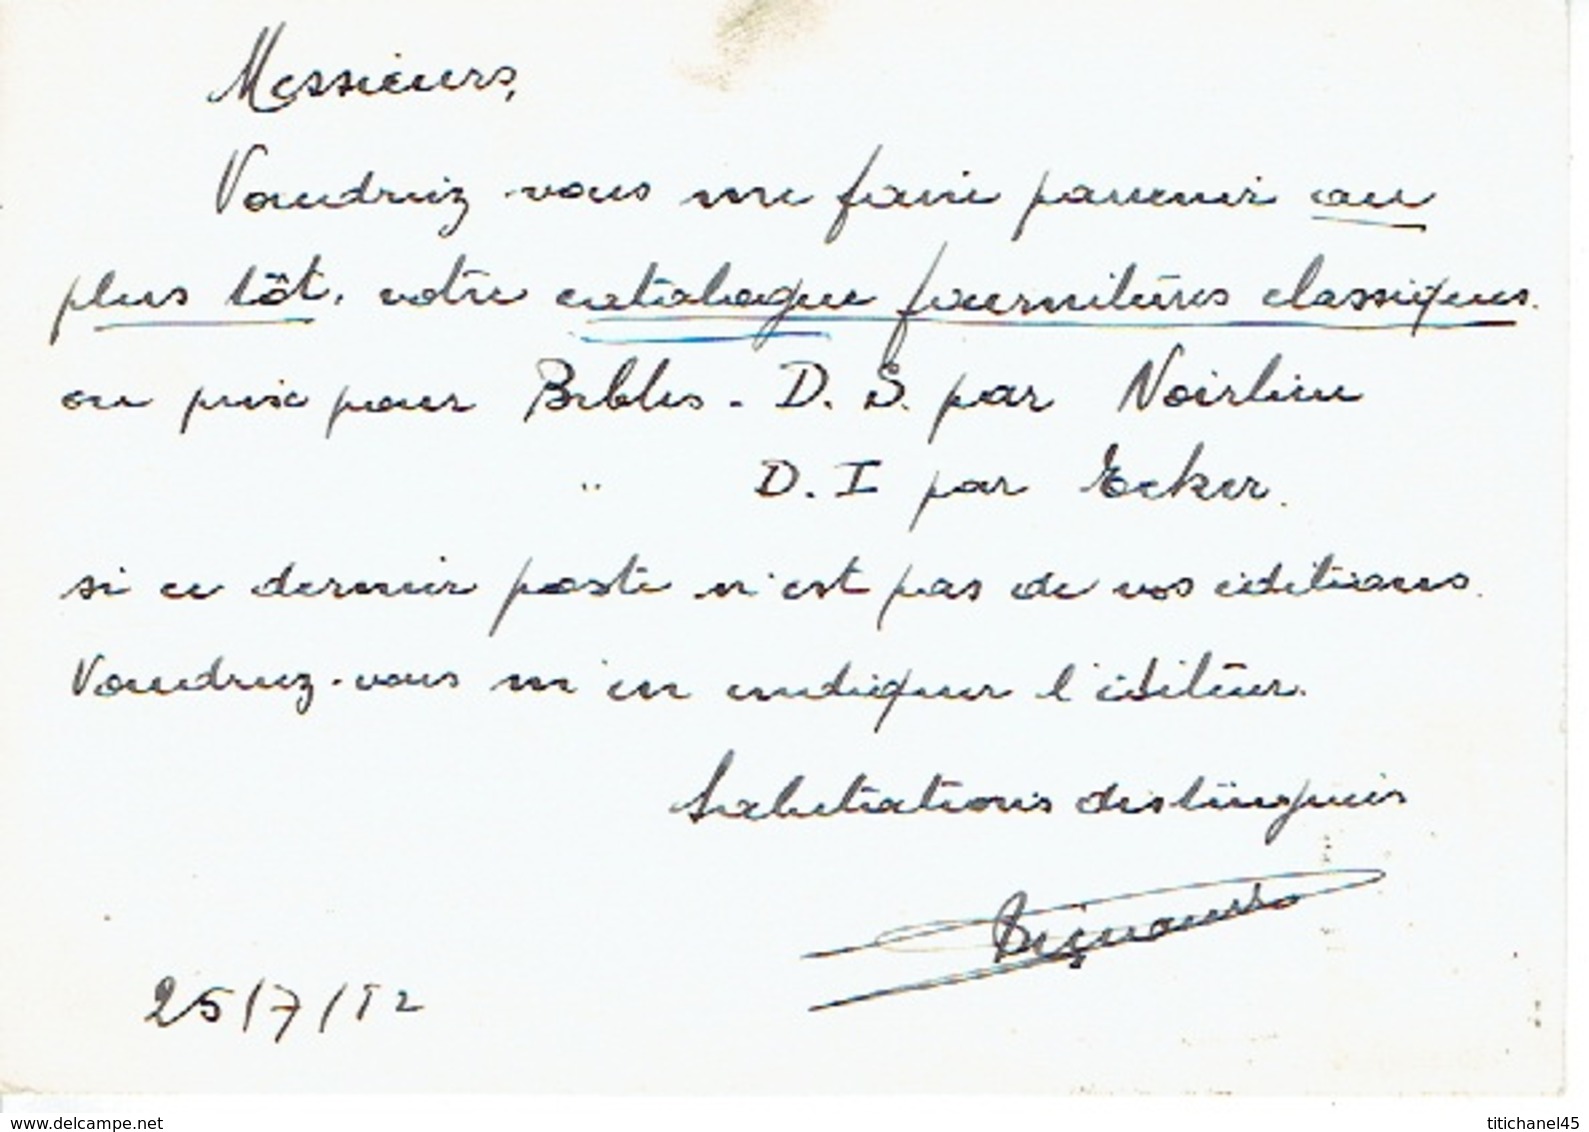 Messieurs,
Voudriez vous me faire parvenir au
plus tôt, votre catalogue fournitures classiques.
ou prix pour Bibles - D. S. par Noirlieu
" D. I par Ecker.
si ce dernier poste n'est pas de vos éditions.
Voudriez-vous m'en indiquer l'éditeur.
Salutations distinguées
25/7/52
www.delcampe.net
titichanel45